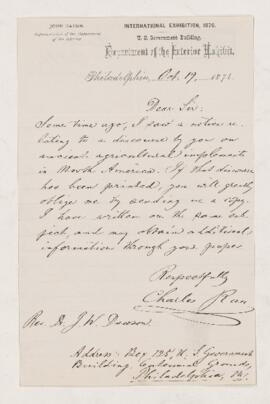 JOHN EATON,
Representative of the Department
of the Interior
INTERNATIONAL EXHIBITION, 1876.
U. S. Government Building.
Department of the Interior Exhibit.
Philadelphia, Oct. 19, 1876.
Dear Sir:
Some time ago, I saw a notice re-
lating to a discourse by you on
ancient agricultural implements
in North America. If that discourse
has been printed, you will greatly
oblige me by sending me a copy.
I have written on the same sub-
ject, and may obtain additional
information through your paper
Respectfully
Charles Rau
Rev. Dr. J. W. Dawson.
Address: Box 195, U. S. Government
Building, Centennial Grounds,
Philadelphia, Pa.